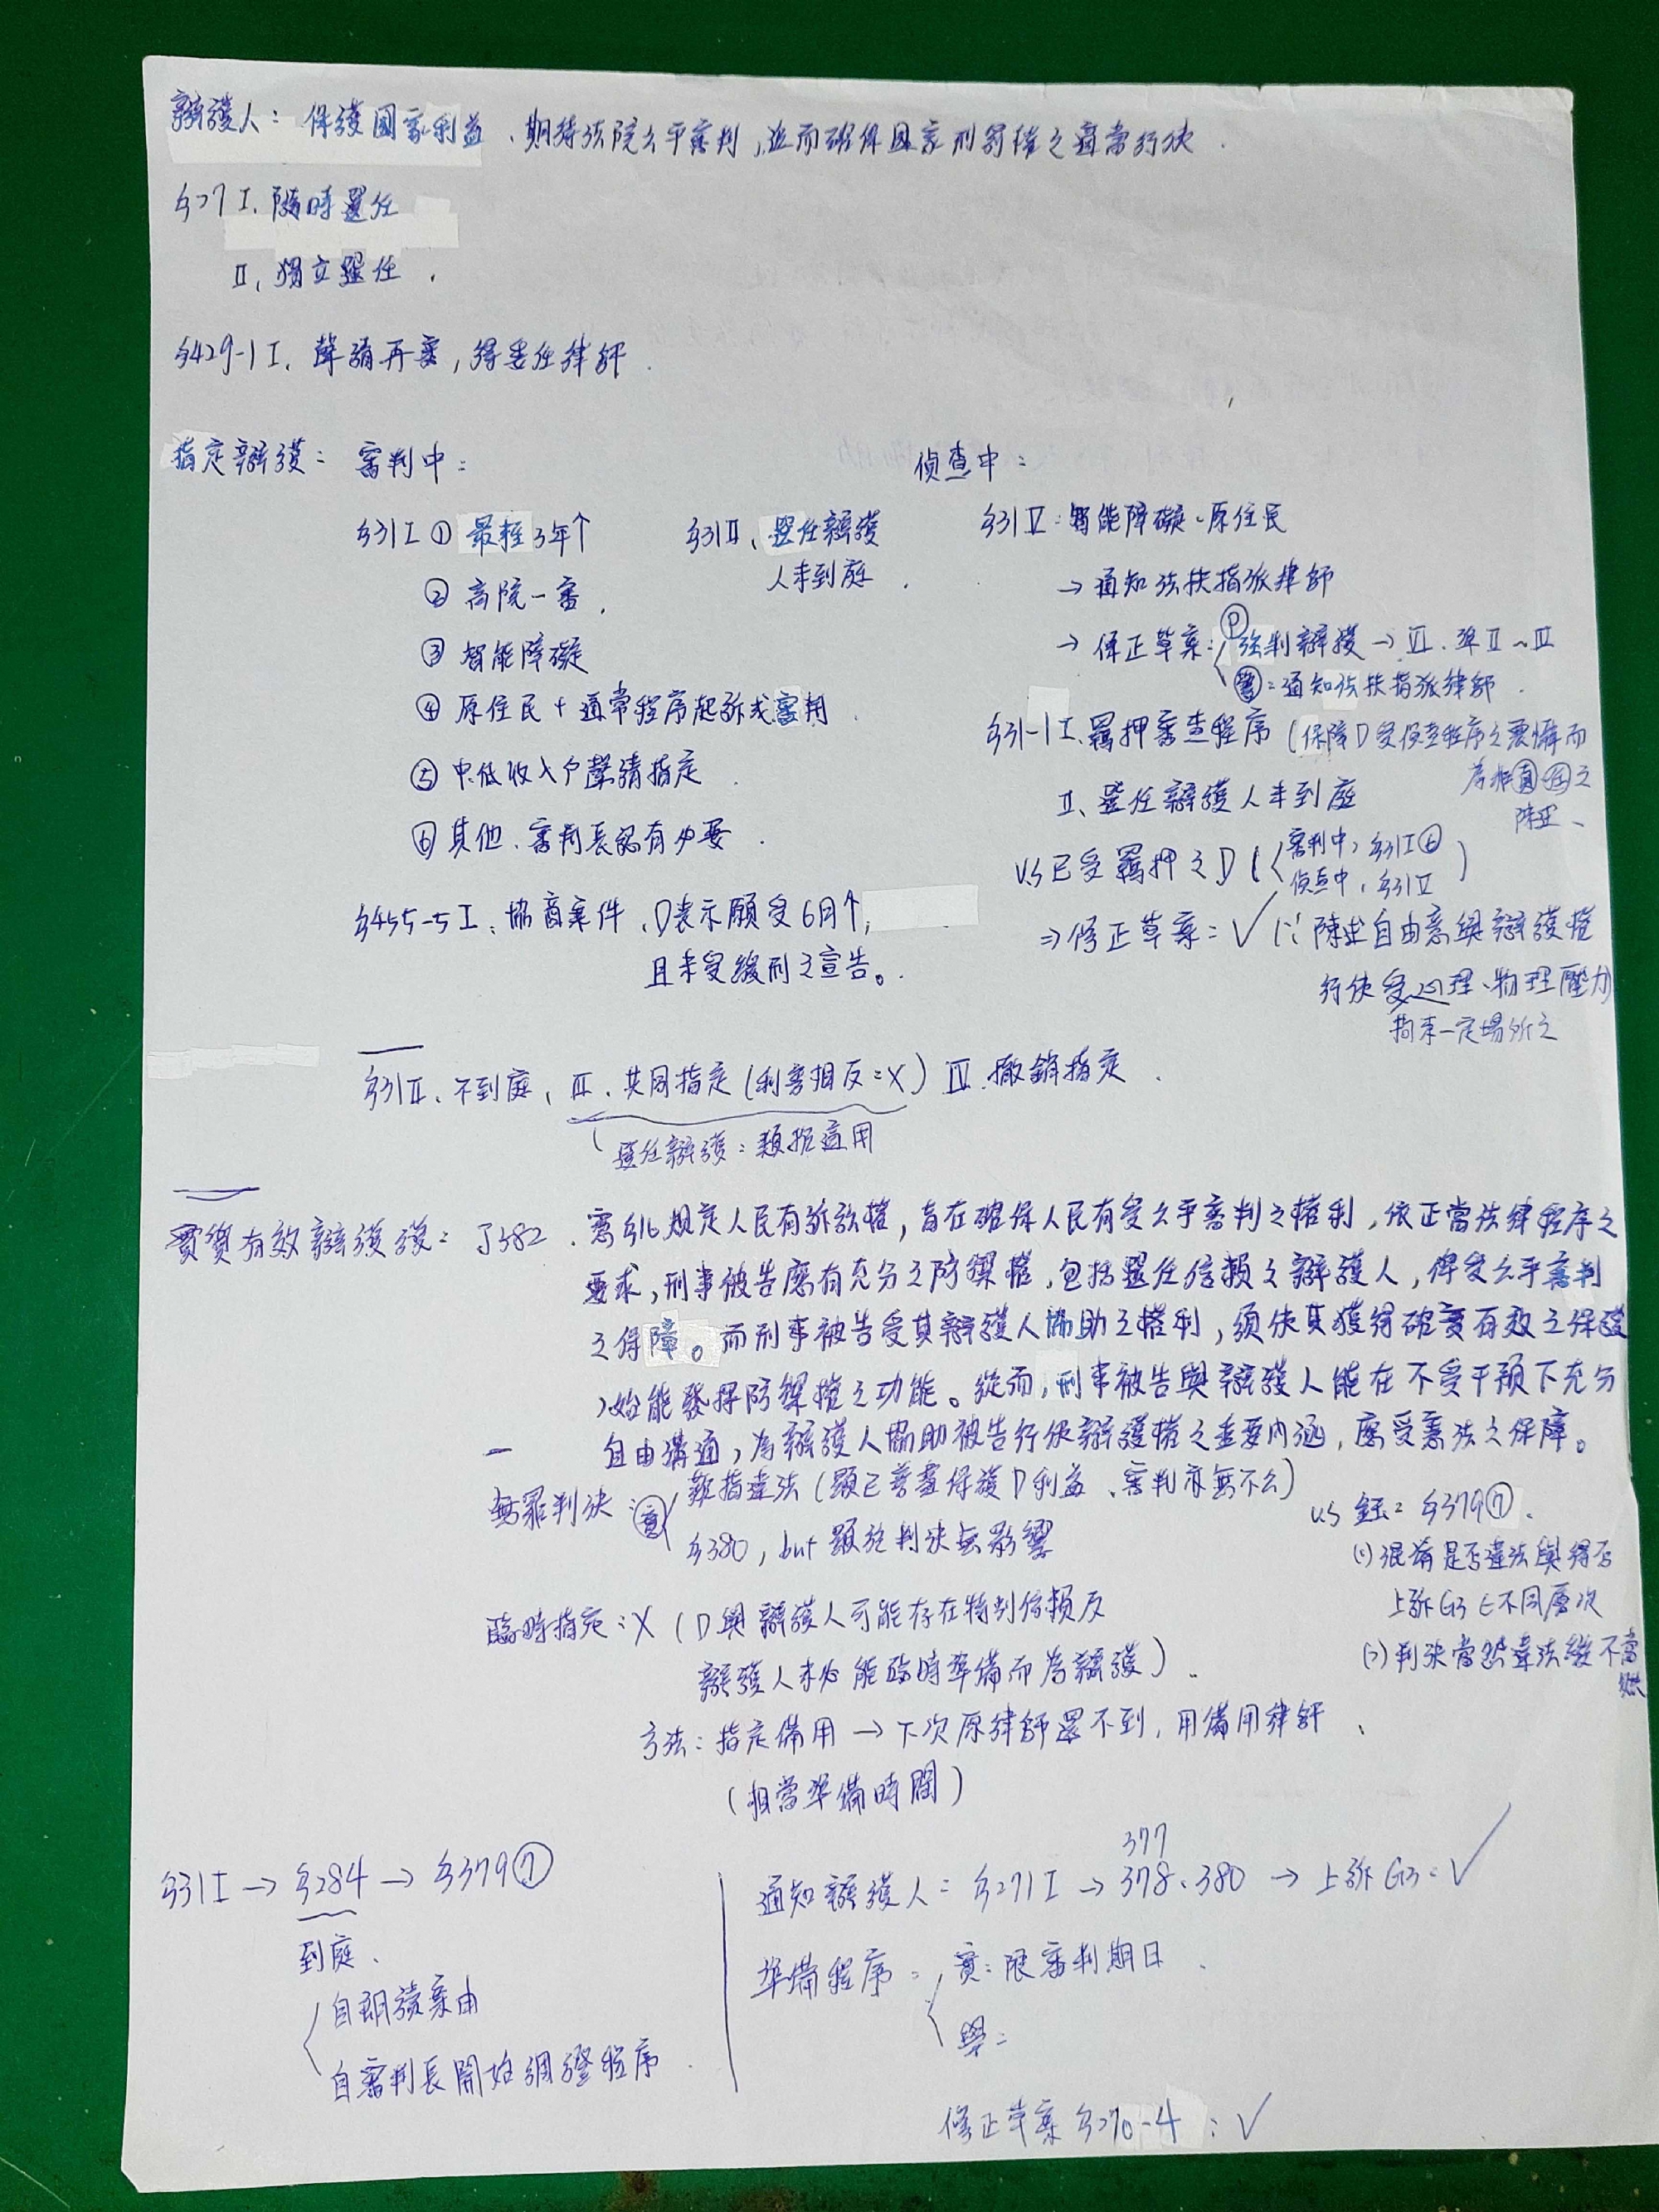 辯護人：保護國家利益、期待法院公平審判，進而確保國家刑罰權之適當行使.
§27 I. 隨時選任
II. 獨立選任.
§429-1 I. 聲請再審，得委任律師.
指定辯護：審判中：
§31 I ① 最輕3年↑
② 高院一審.
③ 智能障礙
④ 原住民+通常程序起訴或審判.
⑤ 中低收入戶聲請指定.
⑥ 其他、審判長認有必要.
§31 II、選任辯護
人未到庭.
§455-5 I、協商案件、D表示願受6月↑,
且未受緩刑之宣告。.
偵查中：
§31 V：智能障礙、原住民
→ 通知法扶指派律師
→ 修正草案： Ⓟ 強制辯護 → VI. 準II~IV
警：通知法扶指派律師.
§31-1 I、羈押審查程序 (保障D受偵查程序之震懾而
為非真任之
陳述、
II、選任辯護人未到庭
vs 已受羈押之D (審判中，§31 I ⑥
偵查中，§31 V)
⇒ 修正草案：✓ (∵ 陳述自由意與辯護權
行使受心理、物理壓力
拘束一定場所之
§31 II、不到庭、III. 共同指定(利害相反=X) IV. 撤銷指定.
選任辯護：類推適用
實質有效辯護：J582. 憲§16規定人民有訴訟權，旨在確保人民有受公平審判之權利，依正當法律程序之
要求，刑事被告應有充分之防禦權，包括選任信賴之辯護人，俾受公平審判
之保障。而刑事被告受其辯護人協助之權利，須使其獲得確實有效之保護
，始能發揮防禦權之功能。從而，刑事被告與辯護人能在不受干預下充分
自由溝通，為辯護人協助被告行使辯護權之重要內涵，應受憲法之保障。
無罪判決：實 難指違法(顯已善盡保護D利益、審判亦無不公)
§380，but 顯於判決無影響
vs §379⑦.
(1) 混淆是否違法與得否
上訴G3 ∈不同層次
(2) 判決當然違法縱不當
然
臨時指定：X (D與辯護人可能存在特別信賴反
辯護人未必能臨時準備而為辯護).
方法：指定備用 → 下次原律師還不到，用備用律師、
(相當準備時間)
§31 I → §284 → §379⑦
到庭、
自朗讀案由
自審判長開始調證程序.
通知辯護人：§271 I → 377 378、380 → 上訴G3：✓
準備程序： 實：限審判期日.
學：
修正草案 §270-4：✓